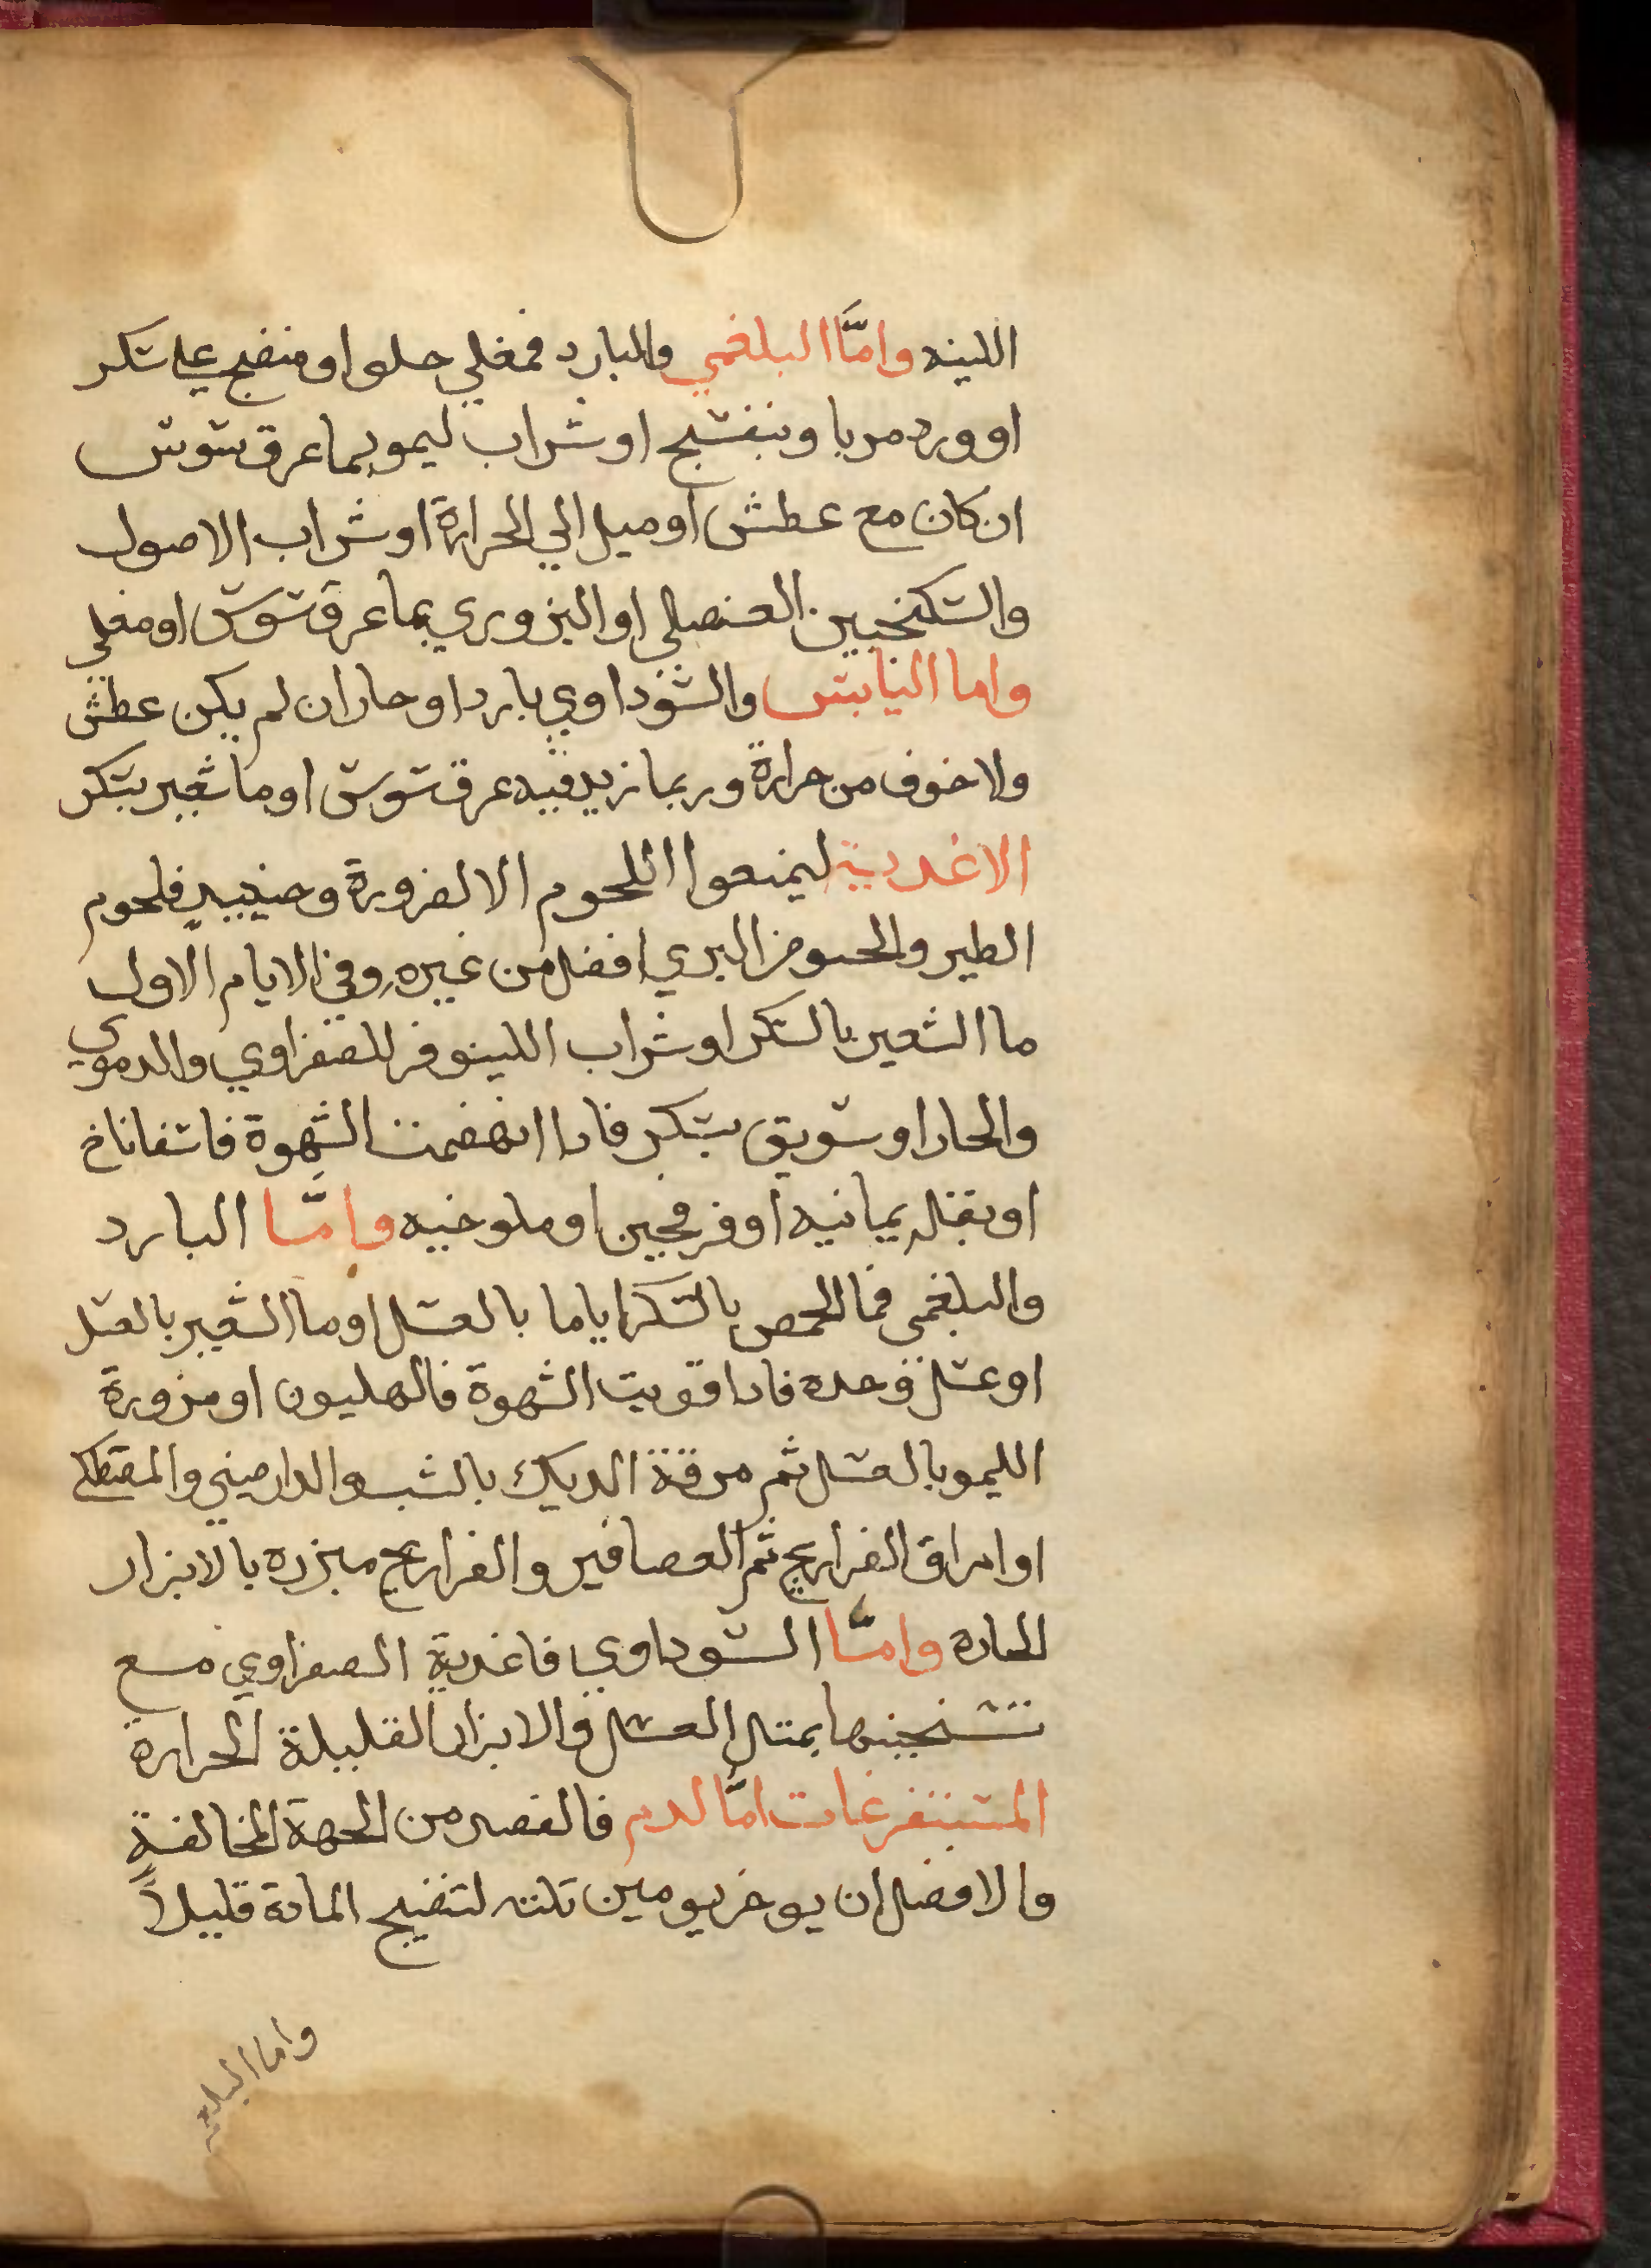 اللينه واما البلغمي والبارد فمغلي حلو او منضج علي سكر
او ورد مربا وبنفسج او شراب ليمو بما عرق سوس
ان كان مع عطش او ميل الي الحرارة او شراب الاصول
والسكنجبين العنصلي او البزوري بما عرق سوس او مغلي
واما اليابس والسوداوي بارد او حار ان لم يكن عطش
ولا خوف من حرارة وربما زيد فيه عرق سوس او ما شعير بسكر
الاغدية ليمنعوا اللحوم الا لضرورة وحينيد فلحوم
الطير والحسو من البري افضل من غيره وفي الايام الاول
ما الشعير بالسكر او شراب اللينوفر للصفراوي والدموي
والحار او سويق بسكر فادا انهضمت الشهوة فاسفاناخ
او بقله يمانيه او فرفحين او ملوخيه واما البارد
والبلغمي فما الحمص بالسكر اياما بالعسل او ما الشعير بالعسل
او عسل وحده فادا قويت الشهوة فالهليون او مزورة
الليمو بالعسل ثم مرقة الديك بالشبت والدارصيني والمصطكي
او امراق الفراريج ثم العصافير والفراريج مبزره بالابزار
الحاره واما السوداوي فاغدية الصفراوي مع
تسخينها بمتل العسل والابزار القليلة الحرارة
المستفرغات اما الدم فالفصد من الجهة المخالفة
والافضل ان يوخر يومين تلته لتنضج المادة قليلاً
واما البلغم